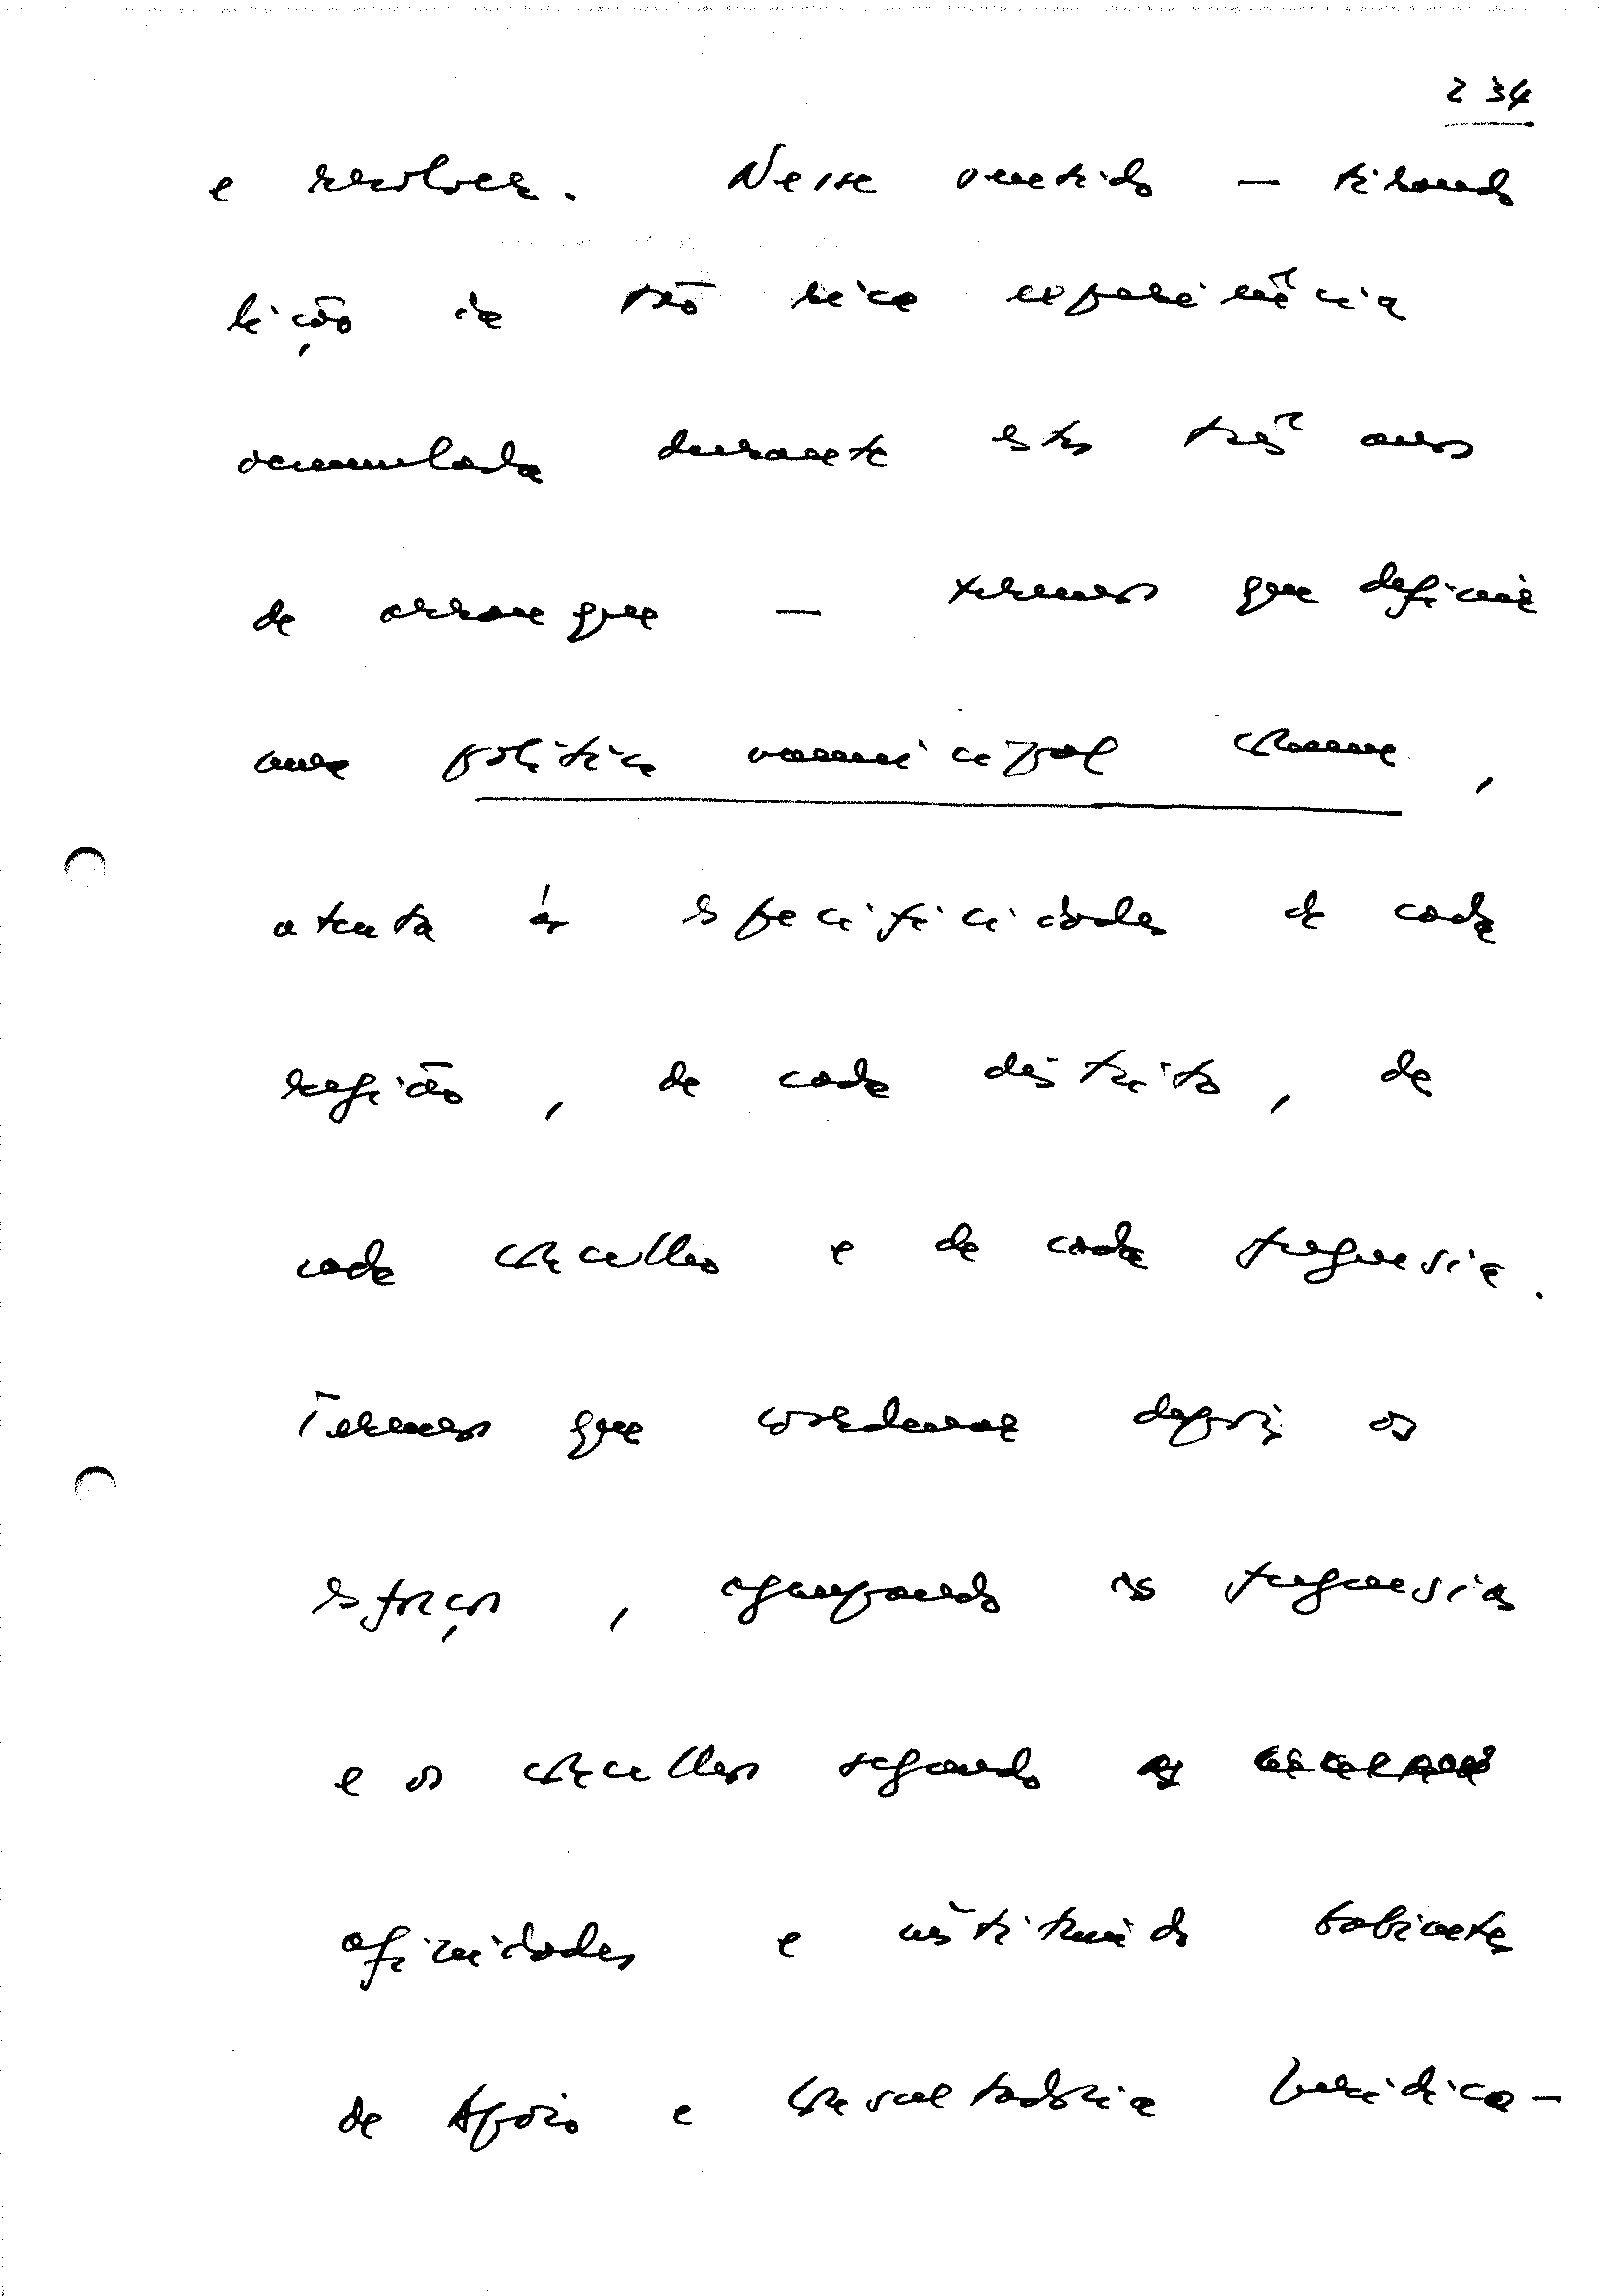 234
e resolver. Nesse sentido — tirando
lição de tão rica experiência
acumulada durante estes três anos
de arranque — teremos que definir
uma política municipal comum,
atenta às especificidades de cada
região, de cada distrito, de
cada concelho e de cada freguesia.
Teremos que coordenar depois os
esforços, agrupando as freguesias
e os concelhos segundo as
afinidades e instituindo Gabinetes
de Apoio e Consultadoria Jurídica-